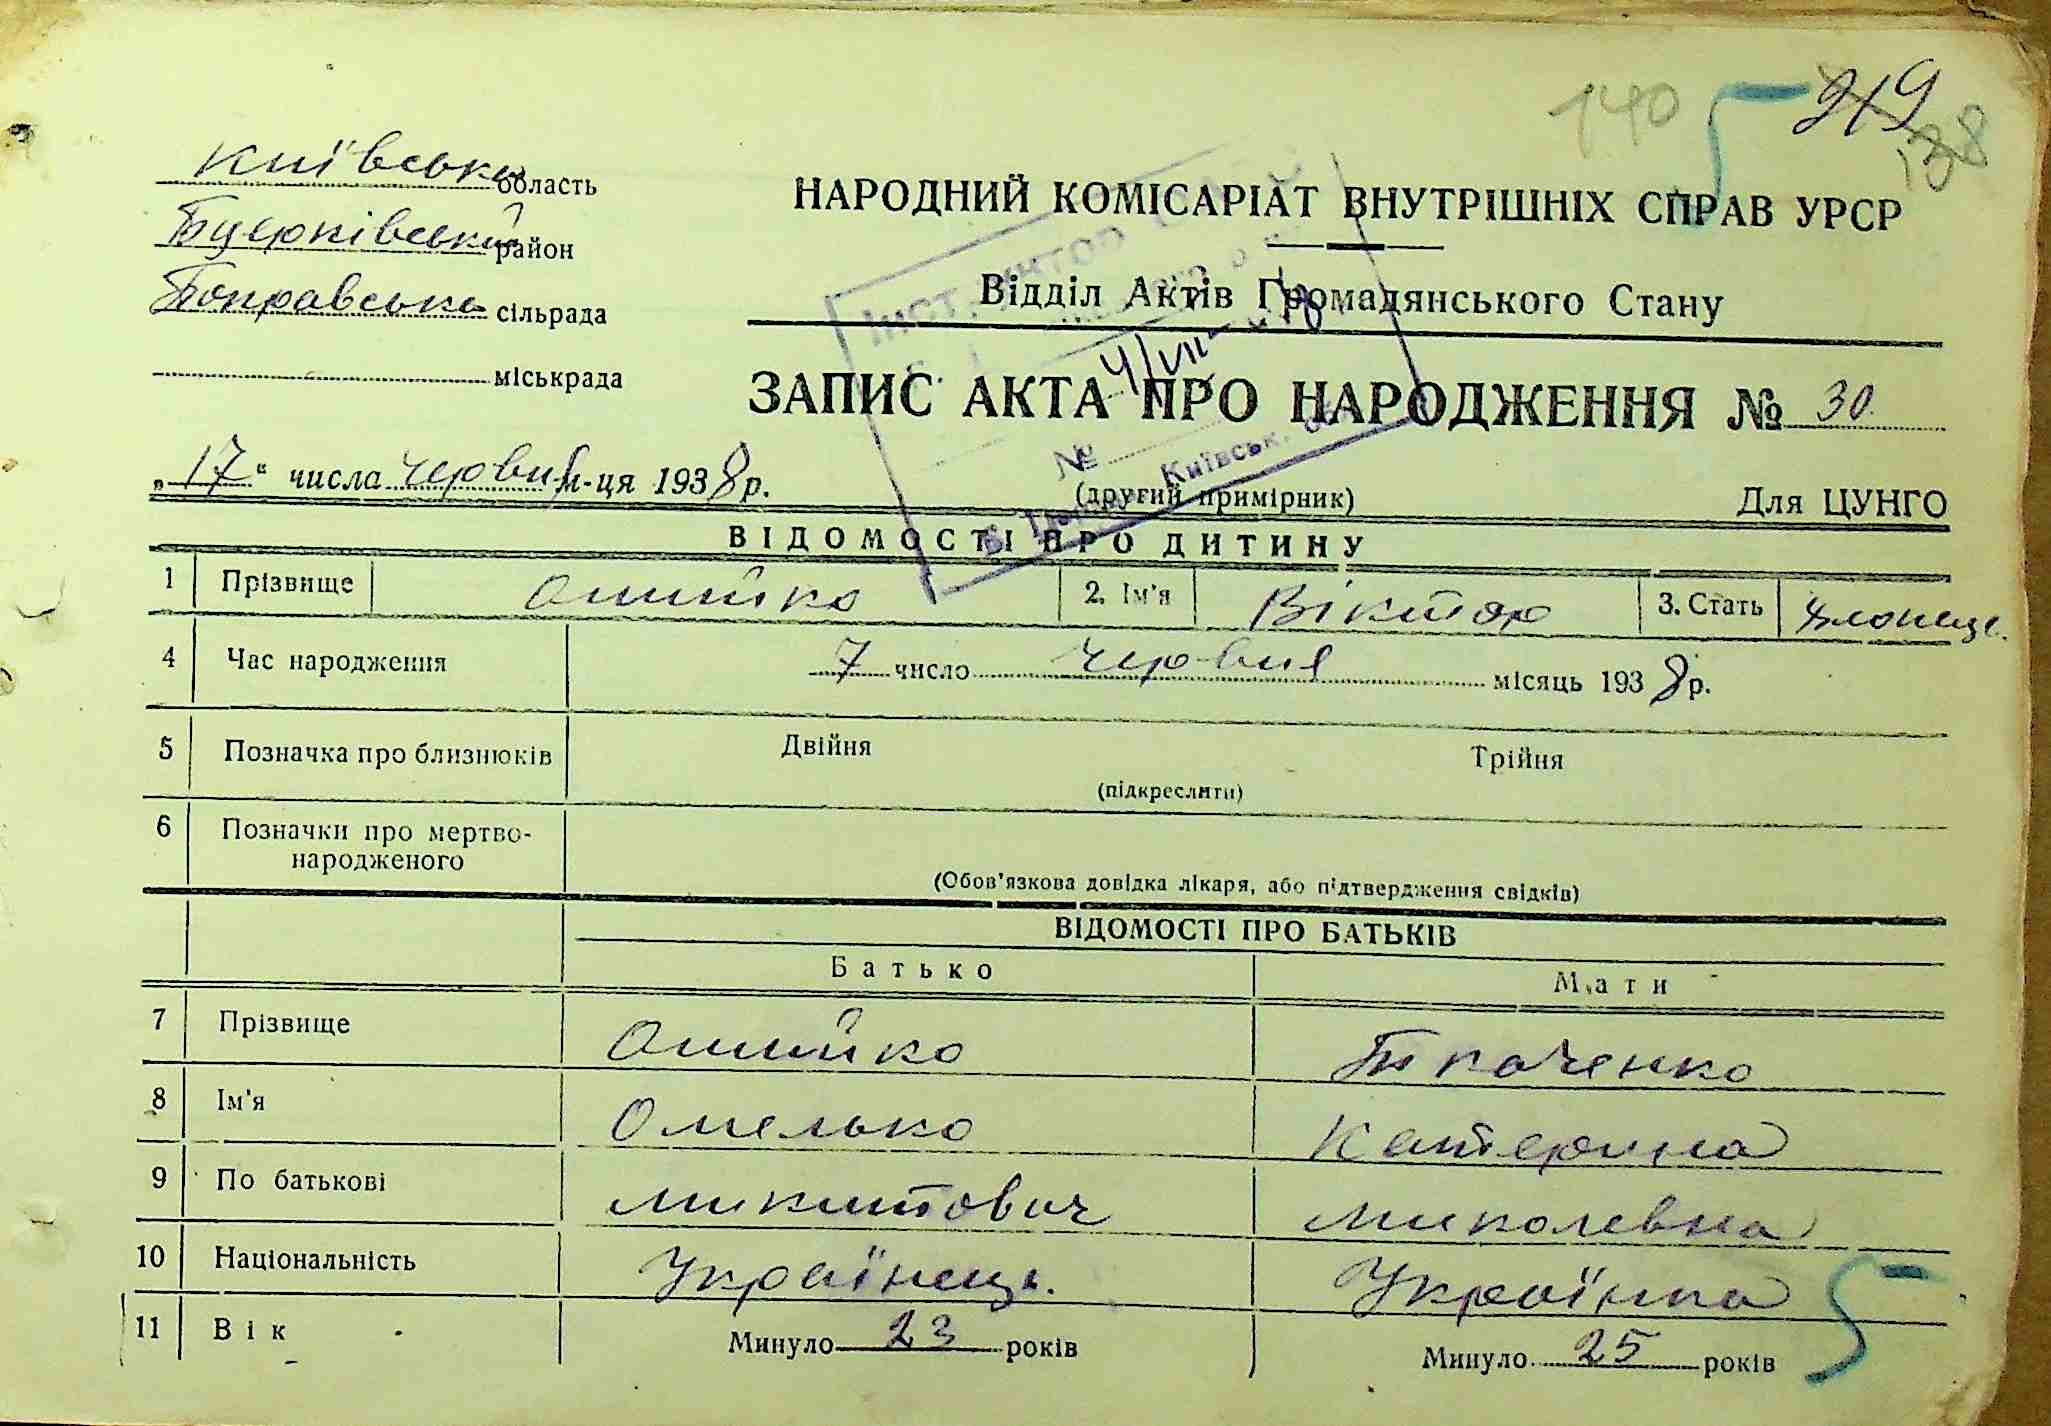 140 5 219 138
Київська область
НАРОДНИЙ КОМІСАРІАТ ВНУТРІШНІХ СПРАВ УРСР
Бцерківський район
Відділ Актів Громадянського Стану
сільрада
міськрада
4/VII
ЗАПИС АКТА ПРО НАРОДЖЕННЯ № 30
№
Київськ.
„17“ числа червня м-ця 1938 р.
(другий примірник)
Для ЦУНГО
ВІДОМОСТІ ПРО ДИТИНУ
1 Прізвище 2. Ім'я Віктор 3. Стать хлопець.
4 Час народження 7 число червня місяць 1938 р.
5 Позначка про близнюків Двійня Трійня
(підкреслити)
6 Позначки про мертво-
народженого
(Обов'язкова довідка лікаря, або підтвердження свідків)
ВІДОМОСТІ ПРО БАТЬКІВ
Батько Мати
7 Прізвище Ткаченко
8 Ім'я Омелько Катерина
9 По батькові Микитович Миколевна
10 Національність Українець. Українка
5
11 Вік Минуло 23 років Минуло 25 років